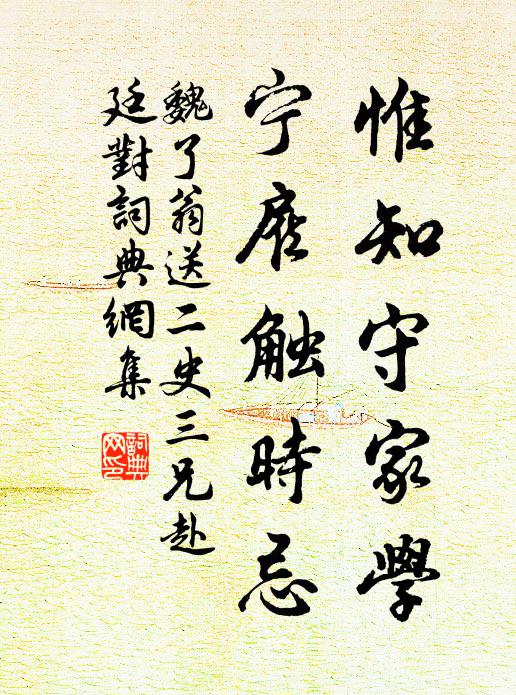 惟知守家學
宁雇触時忌
魏了翁送二史三兄赴
廷對詞典網集
詞典网印